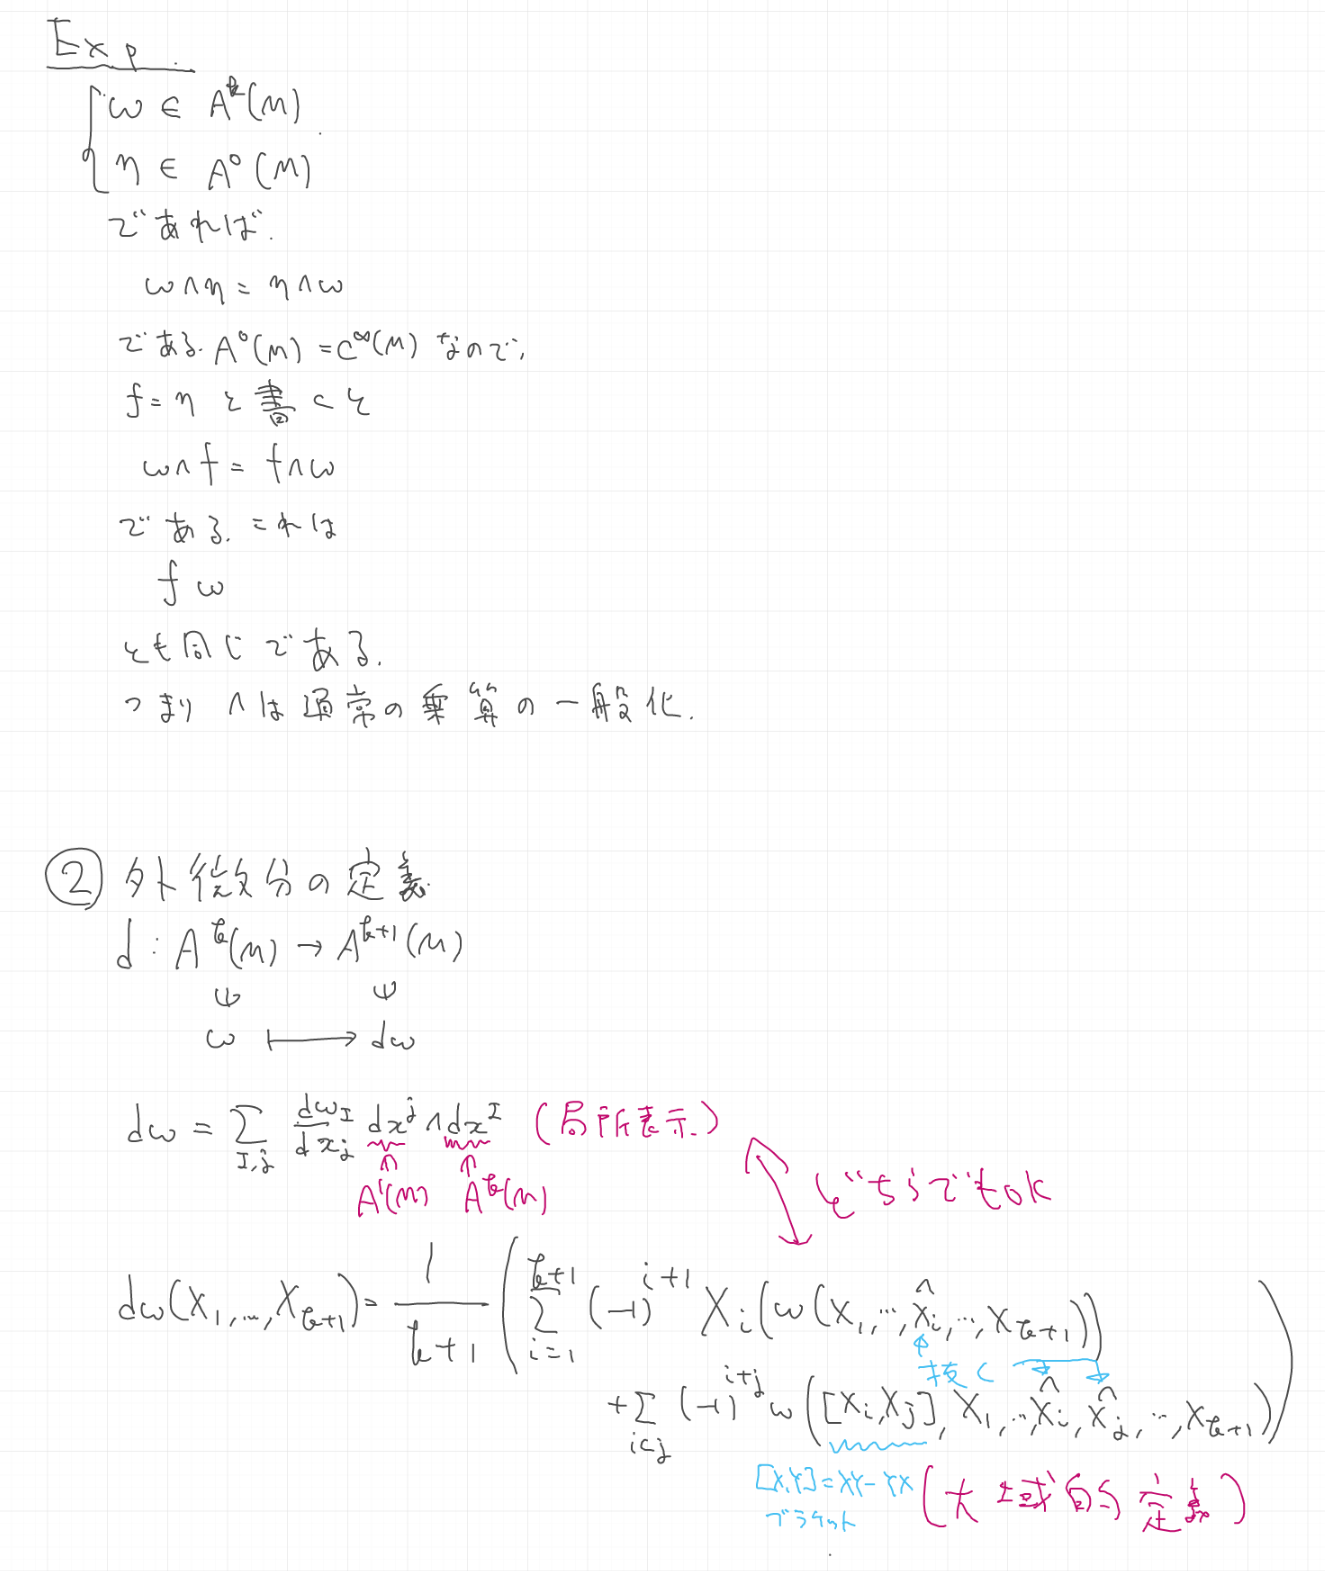 Exp.
ω ∈ A^k(M)
η ∈ A^0(M)
であれば.
ω∧η = η∧ω
である. A^0(M) = C^∞(M) なので,
f = η と書くと
ω∧f = f∧ω
である. これは
f ω
とも同じである.
つまり ∧は通常の乗算の一般化.
② 外微分の定義
d : A^k(M) → A^{k+1}(M)
ω ⟼ dω
dω = Σ_{I,j} dω_I/dx_j dx^j ∧ dx^I (局所表示)
A^1(M) A^k(M)
どちらでもOK
dω(X_1, ..., X_{k+1}) = 1/(k+1) ( Σ_{i=1}^{k+1} (-1)^{i+1} X_i(ω(X_1, ..., X̂_i, ..., X_{k+1}))
抜く
+ Σ_{i<j} (-1)^{i+j} ω([X_i, X_j], X_1, .., X̂_i, X̂_j, ..., X_{k+1}) )
[X,Y] = XY - YX (大域的定義)
ブラケット